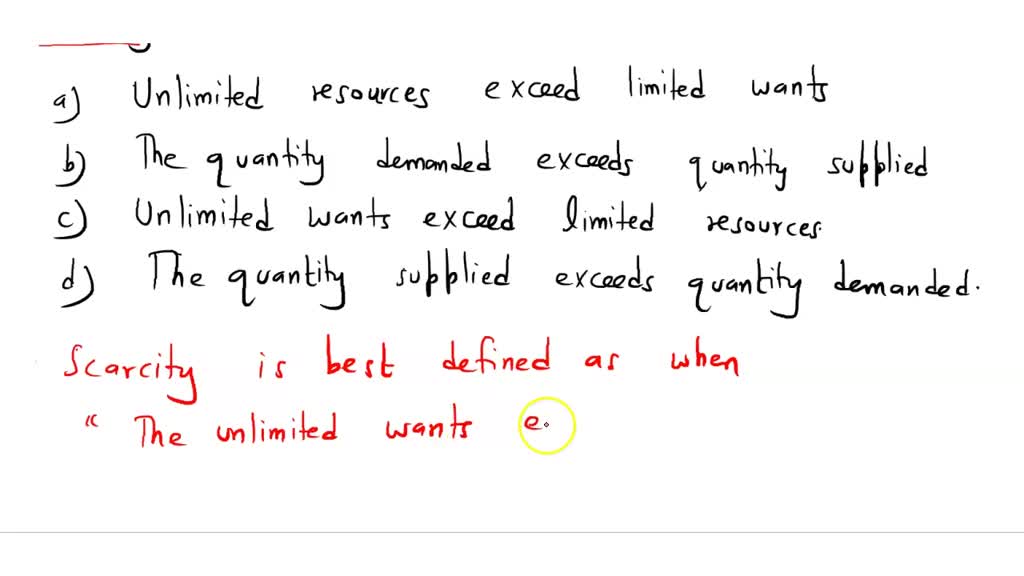 a) Unlimited resources exceed limited wants
b) The quantity demanded exceeds quantity supplied
c) Unlimited wants exceed limited resources.
d) The quantity supplied exceeds quantity demanded.
Scarcity is best defined as when
" The unlimited wants e